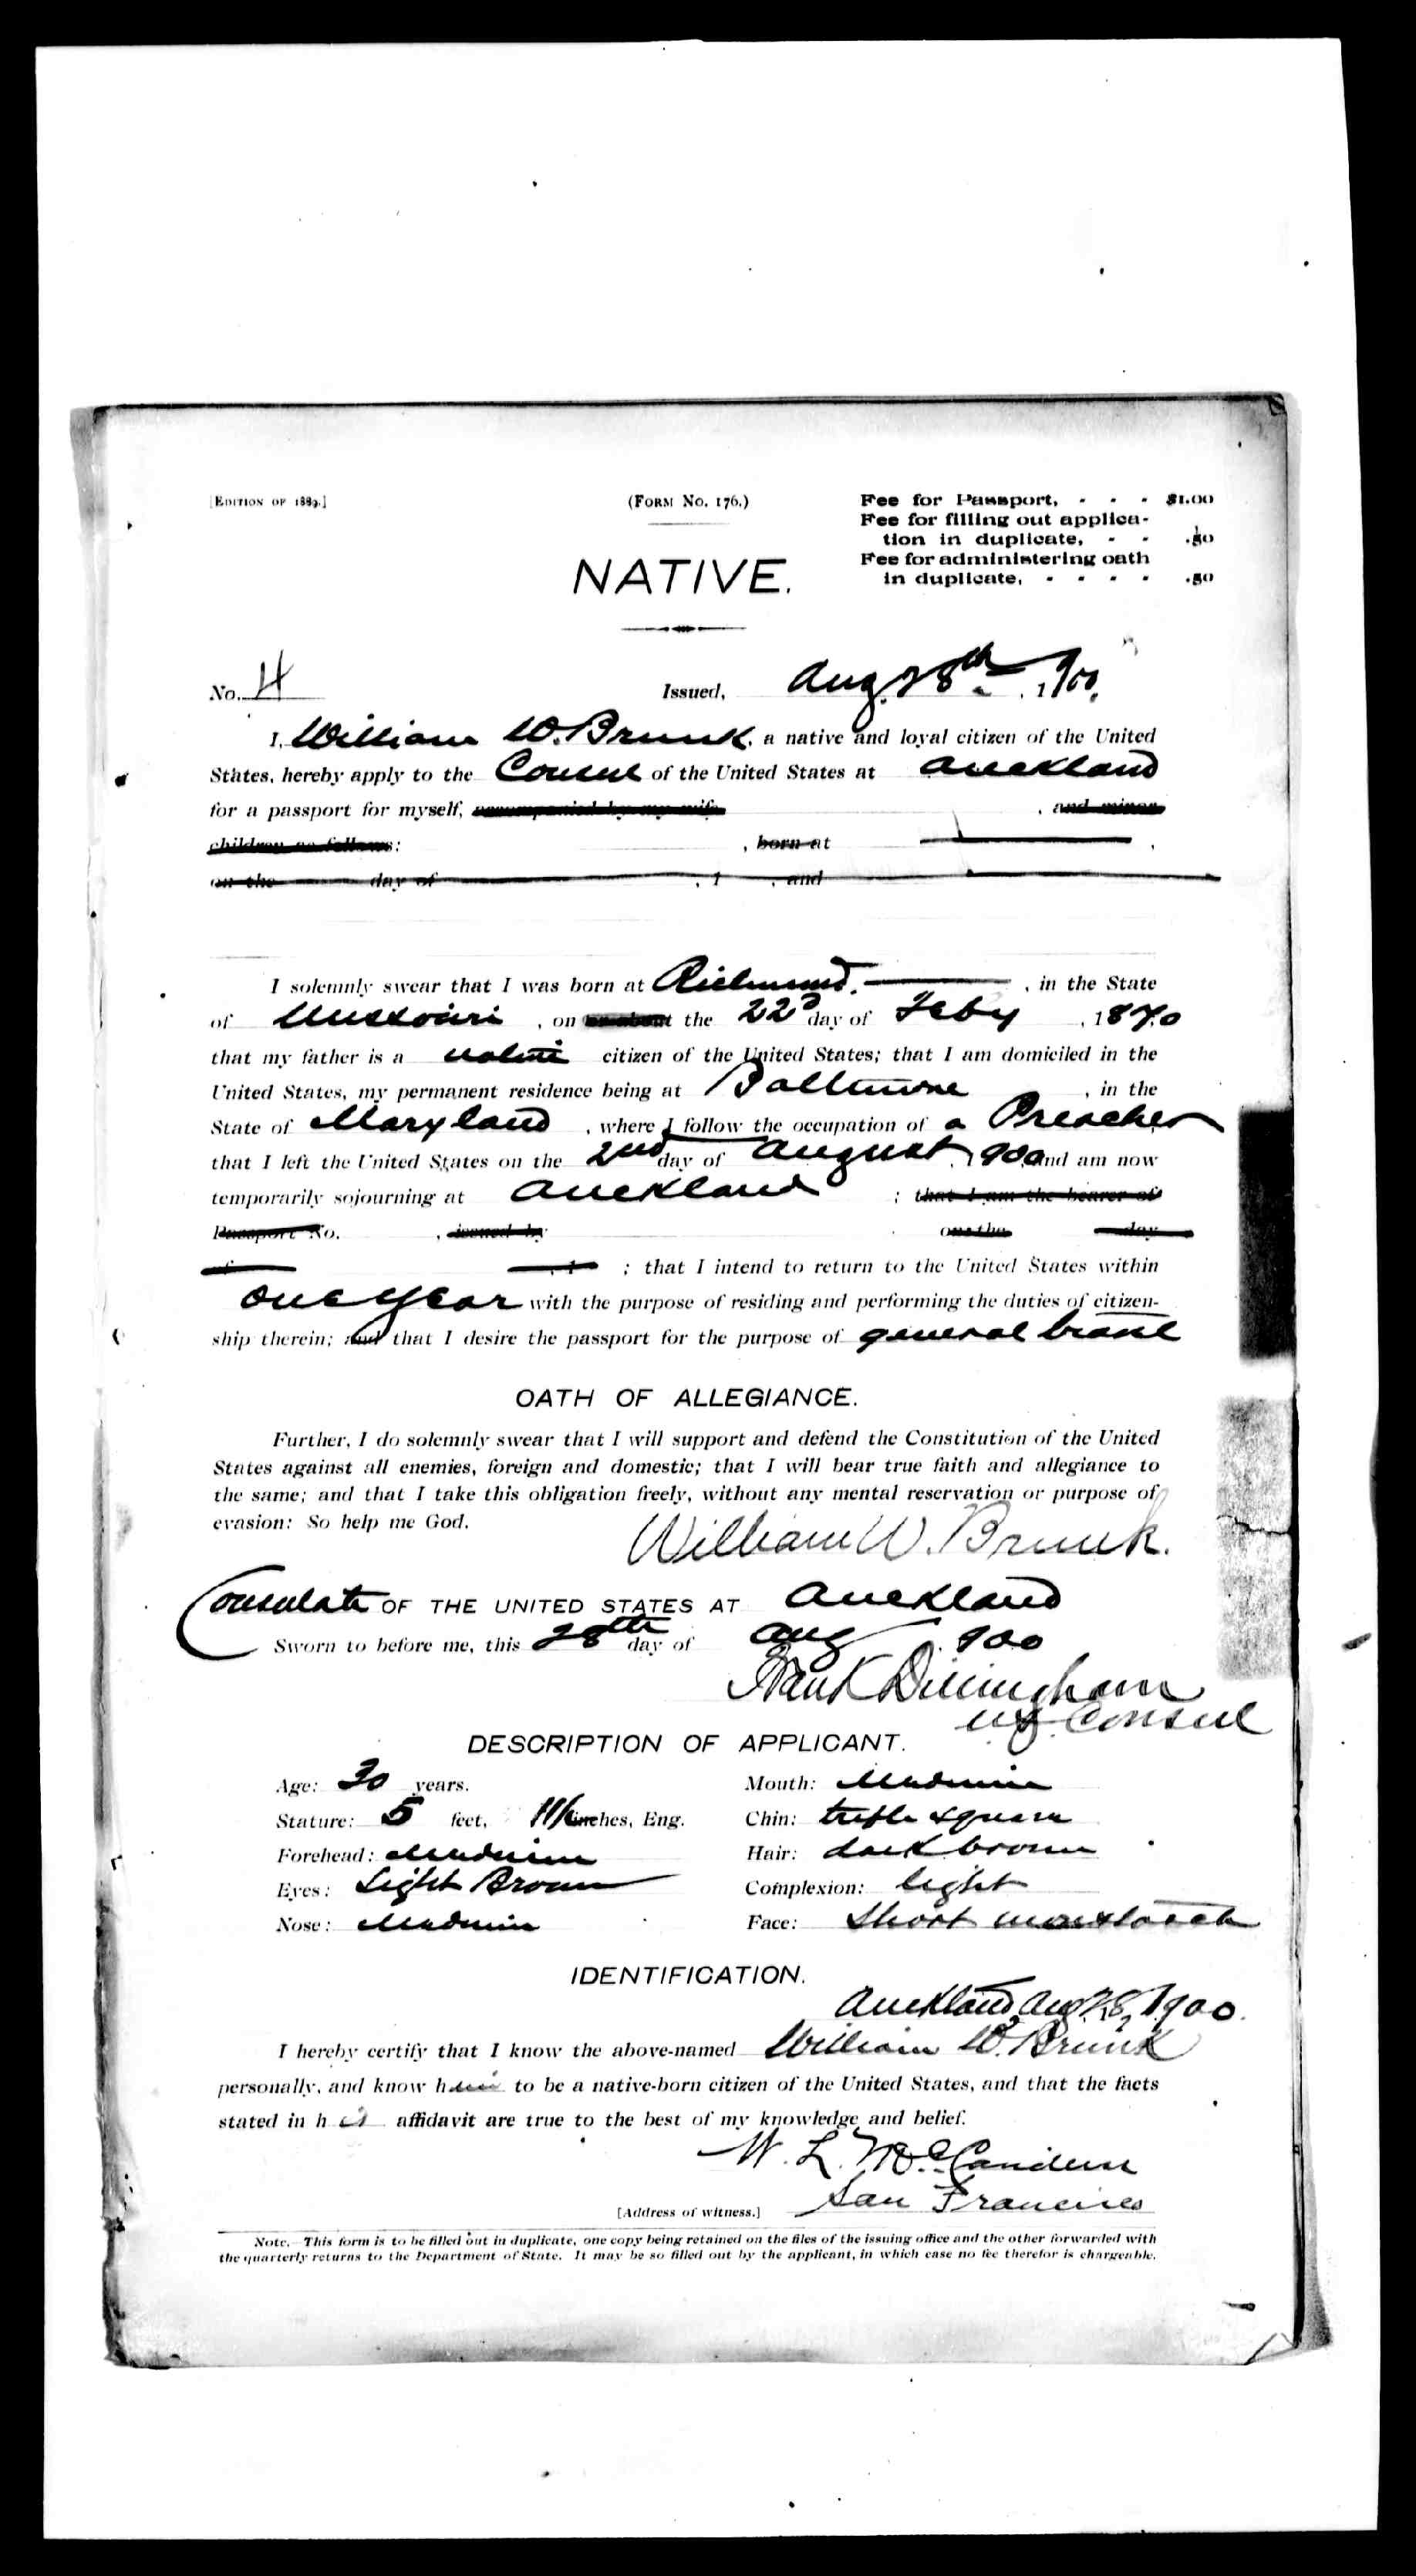 [EDITION OF 1889.] (FORM NO. 176.) Fee for Passport, - - - $1.00
Fee for filling out applica-
tion in duplicate, - - .50
Fee for administering oath
in duplicate, - - - - .50
NATIVE.
No. 4 Issued, Aug. 28th, 1900.
I, William W. Brunk, a native and loyal citizen of the United
States, hereby apply to the Consul of the United States at Auckland
for a passport for myself, accompanied by my wife , and minor
children as follows: , born at ,
on the day of , 1 , and
I solemnly swear that I was born at Richmond. , in the State
of Missouri , on or about the 22d day of Feby , 1870
that my father is a native citizen of the United States; that I am domiciled in the
United States, my permanent residence being at Baltimore , in the
State of Maryland , where I follow the occupation of a Preacher
that I left the United States on the 2nd day of August, 1900 and am now
temporarily sojourning at Auckland ; that I am the bearer of
Passport No. , issued by on the day
of , 1 ; that I intend to return to the United States within
one year with the purpose of residing and performing the duties of citizen-
ship therein; and that I desire the passport for the purpose of general travel
OATH OF ALLEGIANCE.
Further, I do solemnly swear that I will support and defend the Constitution of the United
States against all enemies, foreign and domestic; that I will bear true faith and allegiance to
the same; and that I take this obligation freely, without any mental reservation or purpose of
evasion: So help me God.
William W. Brunk.
Consulate OF THE UNITED STATES AT Auckland
Sworn to before me, this 28th day of Aug , 1900
Frank Dillingham
US Consul
DESCRIPTION OF APPLICANT.
Age: 30 years. Mouth: Medium
Stature: 5 feet, 11 inches, Eng. Chin: square
Forehead: Medium Hair: dark brown
Eyes: Light Brown Complexion: light
Nose: Medium Face: Short moustache
IDENTIFICATION.
Auckland, Aug 28, 1900.
I hereby certify that I know the above-named William W. Brunk
personally, and know him to be a native-born citizen of the United States, and that the facts
stated in his affidavit are true to the best of my knowledge and belief.
W. L.
[Address of witness.] San Francisco
Note.—This form is to be filled out in duplicate, one copy being retained on the files of the issuing office and the other forwarded with
the quarterly returns to the Department of State. It may be so filled out by the applicant, in which case no fee therefor is chargeable.